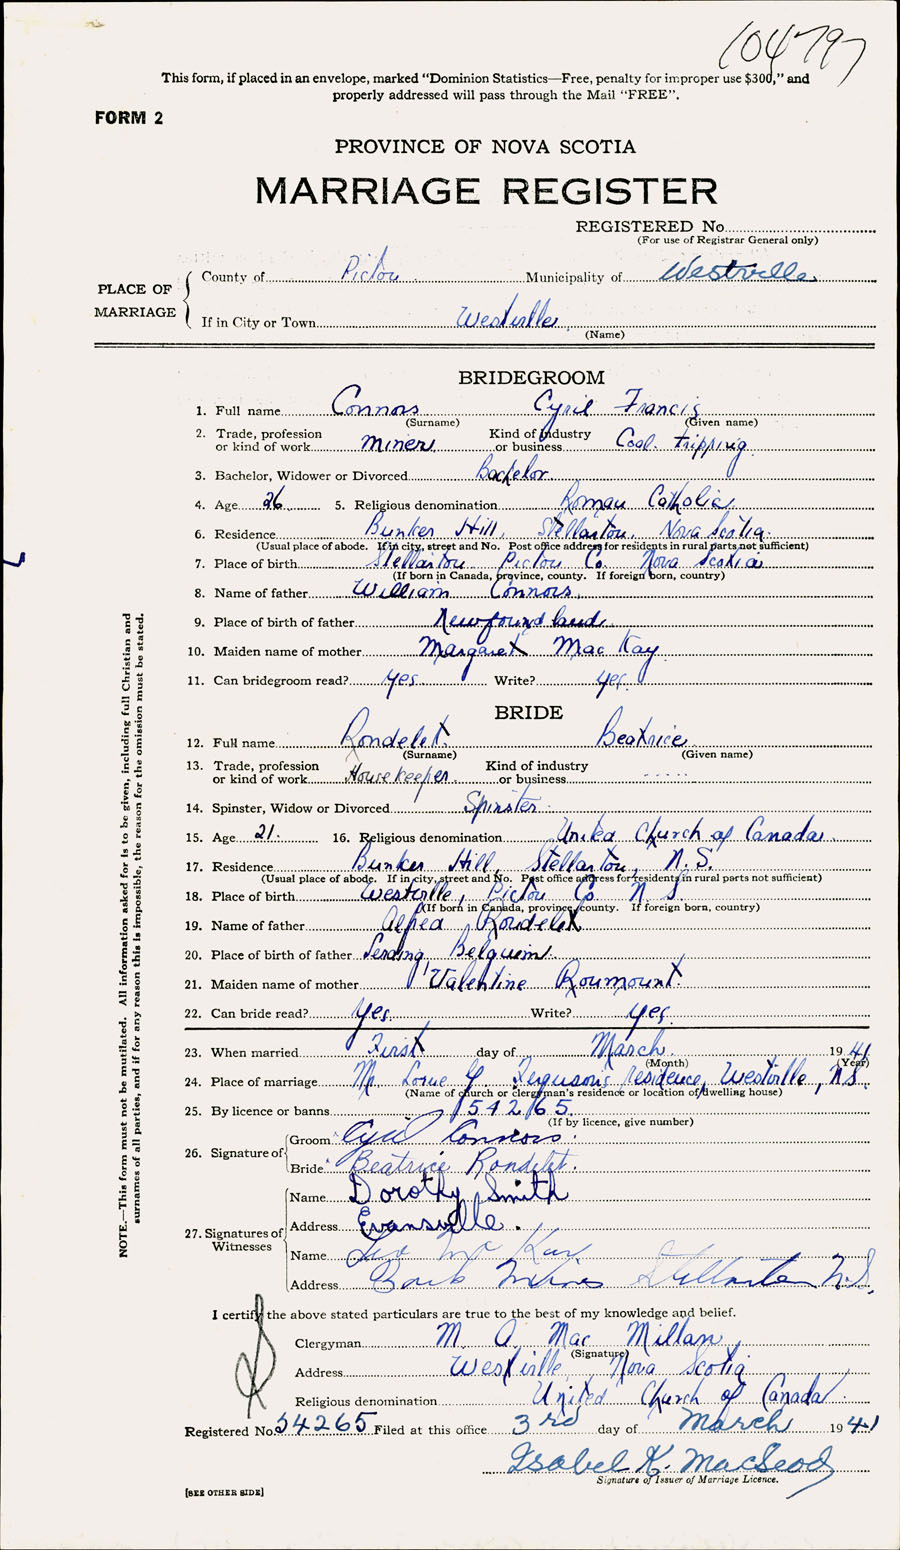 104797
This form, if placed in an envelope, marked “Dominion Statistics—Free, penalty for improper use $300,” and
properly addressed will pass through the Mail “FREE”.
FORM 2
PROVINCE OF NOVA SCOTIA
MARRIAGE REGISTER
REGISTERED No.
(For use of Registrar General only)
PLACE OF MARRIAGE
County of Pictou Municipality of Westville
If in City or Town Westville
(Name)
BRIDEGROOM
1. Full name Connors Cyril Francis
(Surname) (Given name)
2. Trade, profession or kind of work miner Kind of Industry or business Coal
3. Bachelor, Widower or Divorced Bachelor
4. Age 26 5. Religious denomination Roman Catholic
6. Residence Bunker Hill, Stellarton, Nova Scotia
(Usual place of abode. If in city, street and No. Post office address for residents in rural parts not sufficient)
7. Place of birth Stellarton Pictou Co. Nova Scotia
(If born in Canada, province, county. If foreign born, country)
8. Name of father William Connors
9. Place of birth of father Newfoundland
10. Maiden name of mother Margaret Mac Kay
11. Can bridegroom read? yes Write? yes
BRIDE
12. Full name Rondelet Beatrice
(Surname) (Given name)
13. Trade, profession or kind of work Housekeeper Kind of industry or business
14. Spinster, Widow or Divorced Spinster
15. Age 21. 16. Religious denomination United Church of Canada
17. Residence Bunker Hill, Stellarton, N.S.
(Usual place of abode. If in city, street and No. Post office address for residents in rural parts not sufficient)
18. Place of birth Westville, Pictou Co N S
(If born in Canada, province, county. If foreign born, country)
19. Name of father Alfred Rondelet
20. Place of birth of father Belguim
21. Maiden name of mother Valentine Roumount
22. Can bride read? yes Write? yes
23. When married First day of March 1941
(Month) (Year)
24. Place of marriage Mr. Lorne Y. Ferguson's residence, Westville, N.S.
(Name of church or clergyman's residence or location of dwelling house)
25. By licence or banns 54265
(If by licence, give number)
26. Signature of
Groom Cyril Connors
Bride Beatrice Rondelet.
27. Signatures of Witnesses
Name Dorothy Smith
Address Evansville.
Name Mc Kay
Address Mines Stellarton N.S.
I certify the above stated particulars are true to the best of my knowledge and belief.
Clergyman M. A. Mac Millan
(Signature)
Address Westville, Nova Scotia
Religious denomination United Church of Canada
Registered No. 54265 Filed at this office 3rd day of March 1941
Isabel K. MacLeod
Signature of Issuer of Marriage Licence.
[SEE OTHER SIDE]
NOTE.—This form must not be mutilated. All information asked for is to be given, including full Christian and
surnames of all parties, and if for any reason this is impossible, the reason for the omission must be stated.